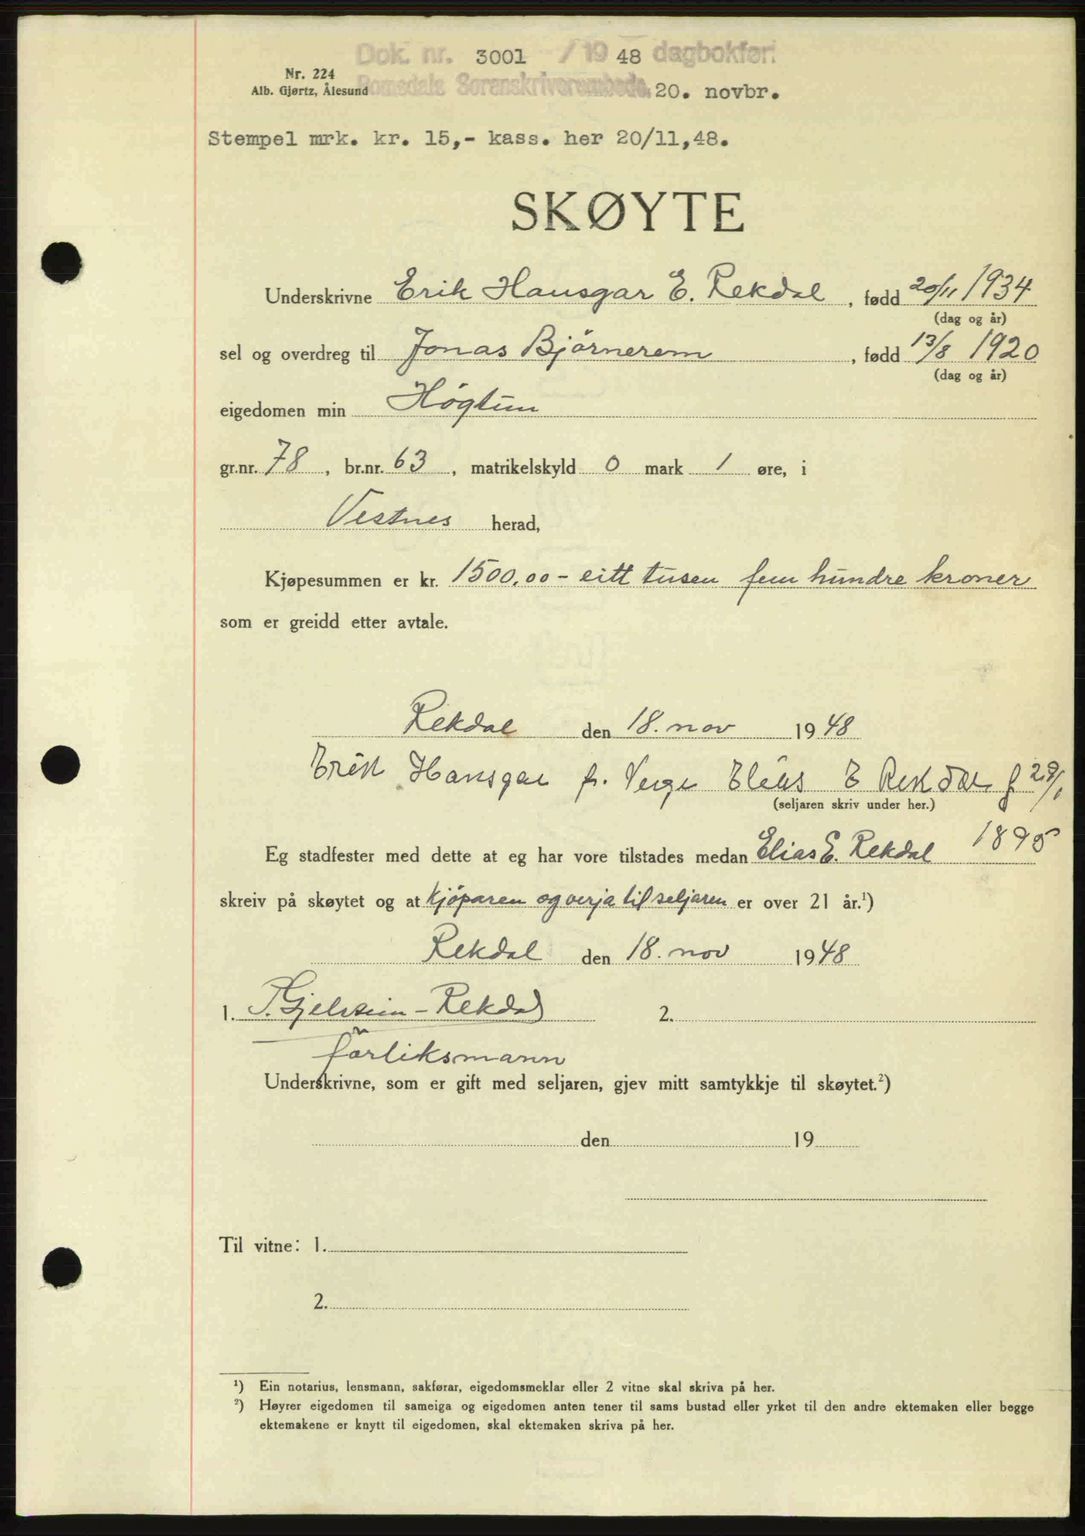 Dok. nr. 3001 / 19 48 dagbokført
Nr. 224
Alb. Gjørtz, Ålesund Romsdals Sorenskriverembede. 20. novbr.
Stempel mrk. kr. 15,- kass. her 20/11,48.
SKØYTE
Underskrivne Erik Hansgar E. Rekdal, fødd 20/11 1934
(dag og år)
sel og overdreg til Jonas Bjørnerem, fødd 13/8 1920
(dag og år)
eigedomen min Høgtun
gr.nr. 78, br.nr. 63, matrikelskyld 0 mark 1 øre, i
Vestnes herad,
Kjøpesummen er kr. 1500,00 - eitt tusen fem hundre kroner
som er greidd etter avtale.
Rekdal den 18. nov 1948
Erik Hansgar f. Verge Elias E Rekdal f 29/1
(seljaren skriv under her.)
1895
Eg stadfester med dette at eg har vore tilstades medan Elias E. Rekdal
skreiv på skøytet og at kjøparen og verja til seljaren er over 21 år.¹)
Rekdal den 18. nov 1948
1. P. Gjelstein - Rekdal 2.
forliksmann
Underskrivne, som er gift med seljaren, gjev mitt samtykkje til skøytet.²)
den 19
Til vitne: 1.
2.
¹) Ein notarius, lensmann, sakførar, eigedomsmeklar eller 2 vitne skal skriva på her.
²) Høyrer eigedomen til sameiga og eigedomen anten tener til sams bustad eller yrket til den andre ektemaken eller begge
ektemakene er knytt til eigedomen, skal ektemaken skriva på her.